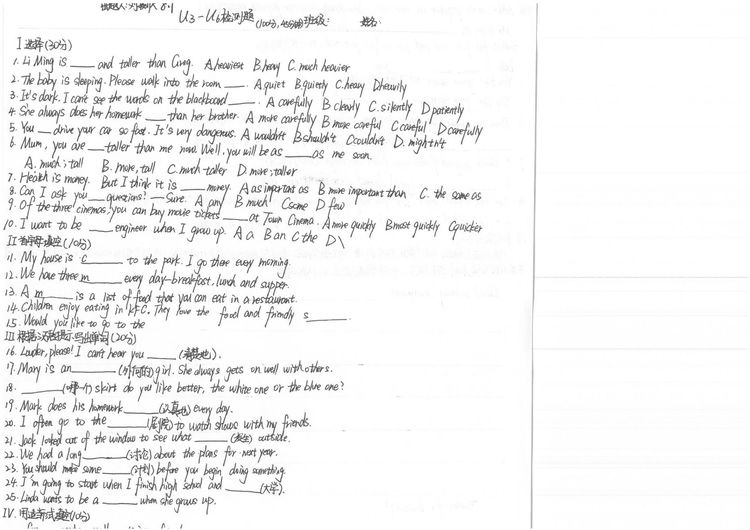 U3-U6检测题 (100分, 45分钟) 班级: 姓名:
I 选择(30分)
1. Li Ming is ____ and taller than Greg. A heaviest B. heavy C. much heavier
2. The baby is sleeping. Please walk into the room ____. A quiet B quietly C. heavy D heavily
3. It's dark. I can't see the words on the blackboard ____. A carefully B clearly C. silently D patiently
4. She always does her homework ____ than her brother. A more carefully B more careful C careful D carefully
5. You ____ drive your car so fast. It's very dangerous. A wouldn't B shouldn't C couldn't D. mightn't
6. Mum, you are ____ taller than me now. Well, you will be as ____ as me soon.
A. much; tall B. more, tall C. much taller D. more; taller
7. Health is money. But I think it is ____ money. A as important as B more important than C. the same as
8. Can I ask you ____ questions? — Sure. A any B much C some D few
9. Of the three cinemas, you can buy movie tickets ____ at Town Cinema. A more quickly B most quickly C quicker
10. I want to be ____ engineer when I grow up. A a B an C the D \
II 首字母填空(10分)
11. My house is c____ to the park. I go there every morning.
12. We have three m____ every day—breakfast, lunch and supper.
13. A m____ is a list of food that you can eat in a restaurant.
14. Children enjoy eating in KFC. They love the food and friendly s____
15. Would you like to go to the
III 根据汉语提示写出单词(20分)
16. Louder, please! I can't hear you ____ (清楚地).
17. Mary is an ____ (外向的) girl. She always gets on well with others.
18. ____ (哪一个) skirt do you like better, the white one or the blue one?
19. Mark does his homework ____ (认真地) every day.
20. I often go to the ____ (剧院) to watch shows with my friends.
21. Jack looked out of the window to see what ____ (发生) outside.
22. We had a long ____ (讨论) about the plans for next year.
23. You should make some ____ (计划) before you begin doing something.
24. I'm going to start when I finish high school and ____ (大学).
25. Linda wants to be a ____ when she grows up.
IV. 用适当形式填空(10分)